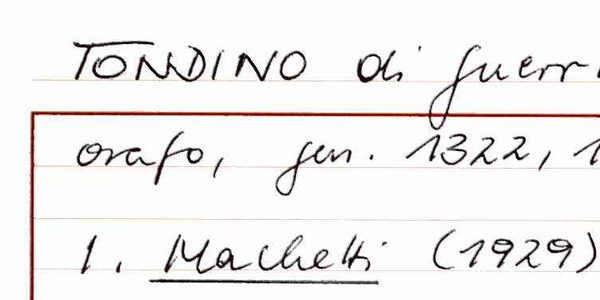 TONDINO di Guerr
orafo, gen. 1322, 1
1. Machetti (1929)